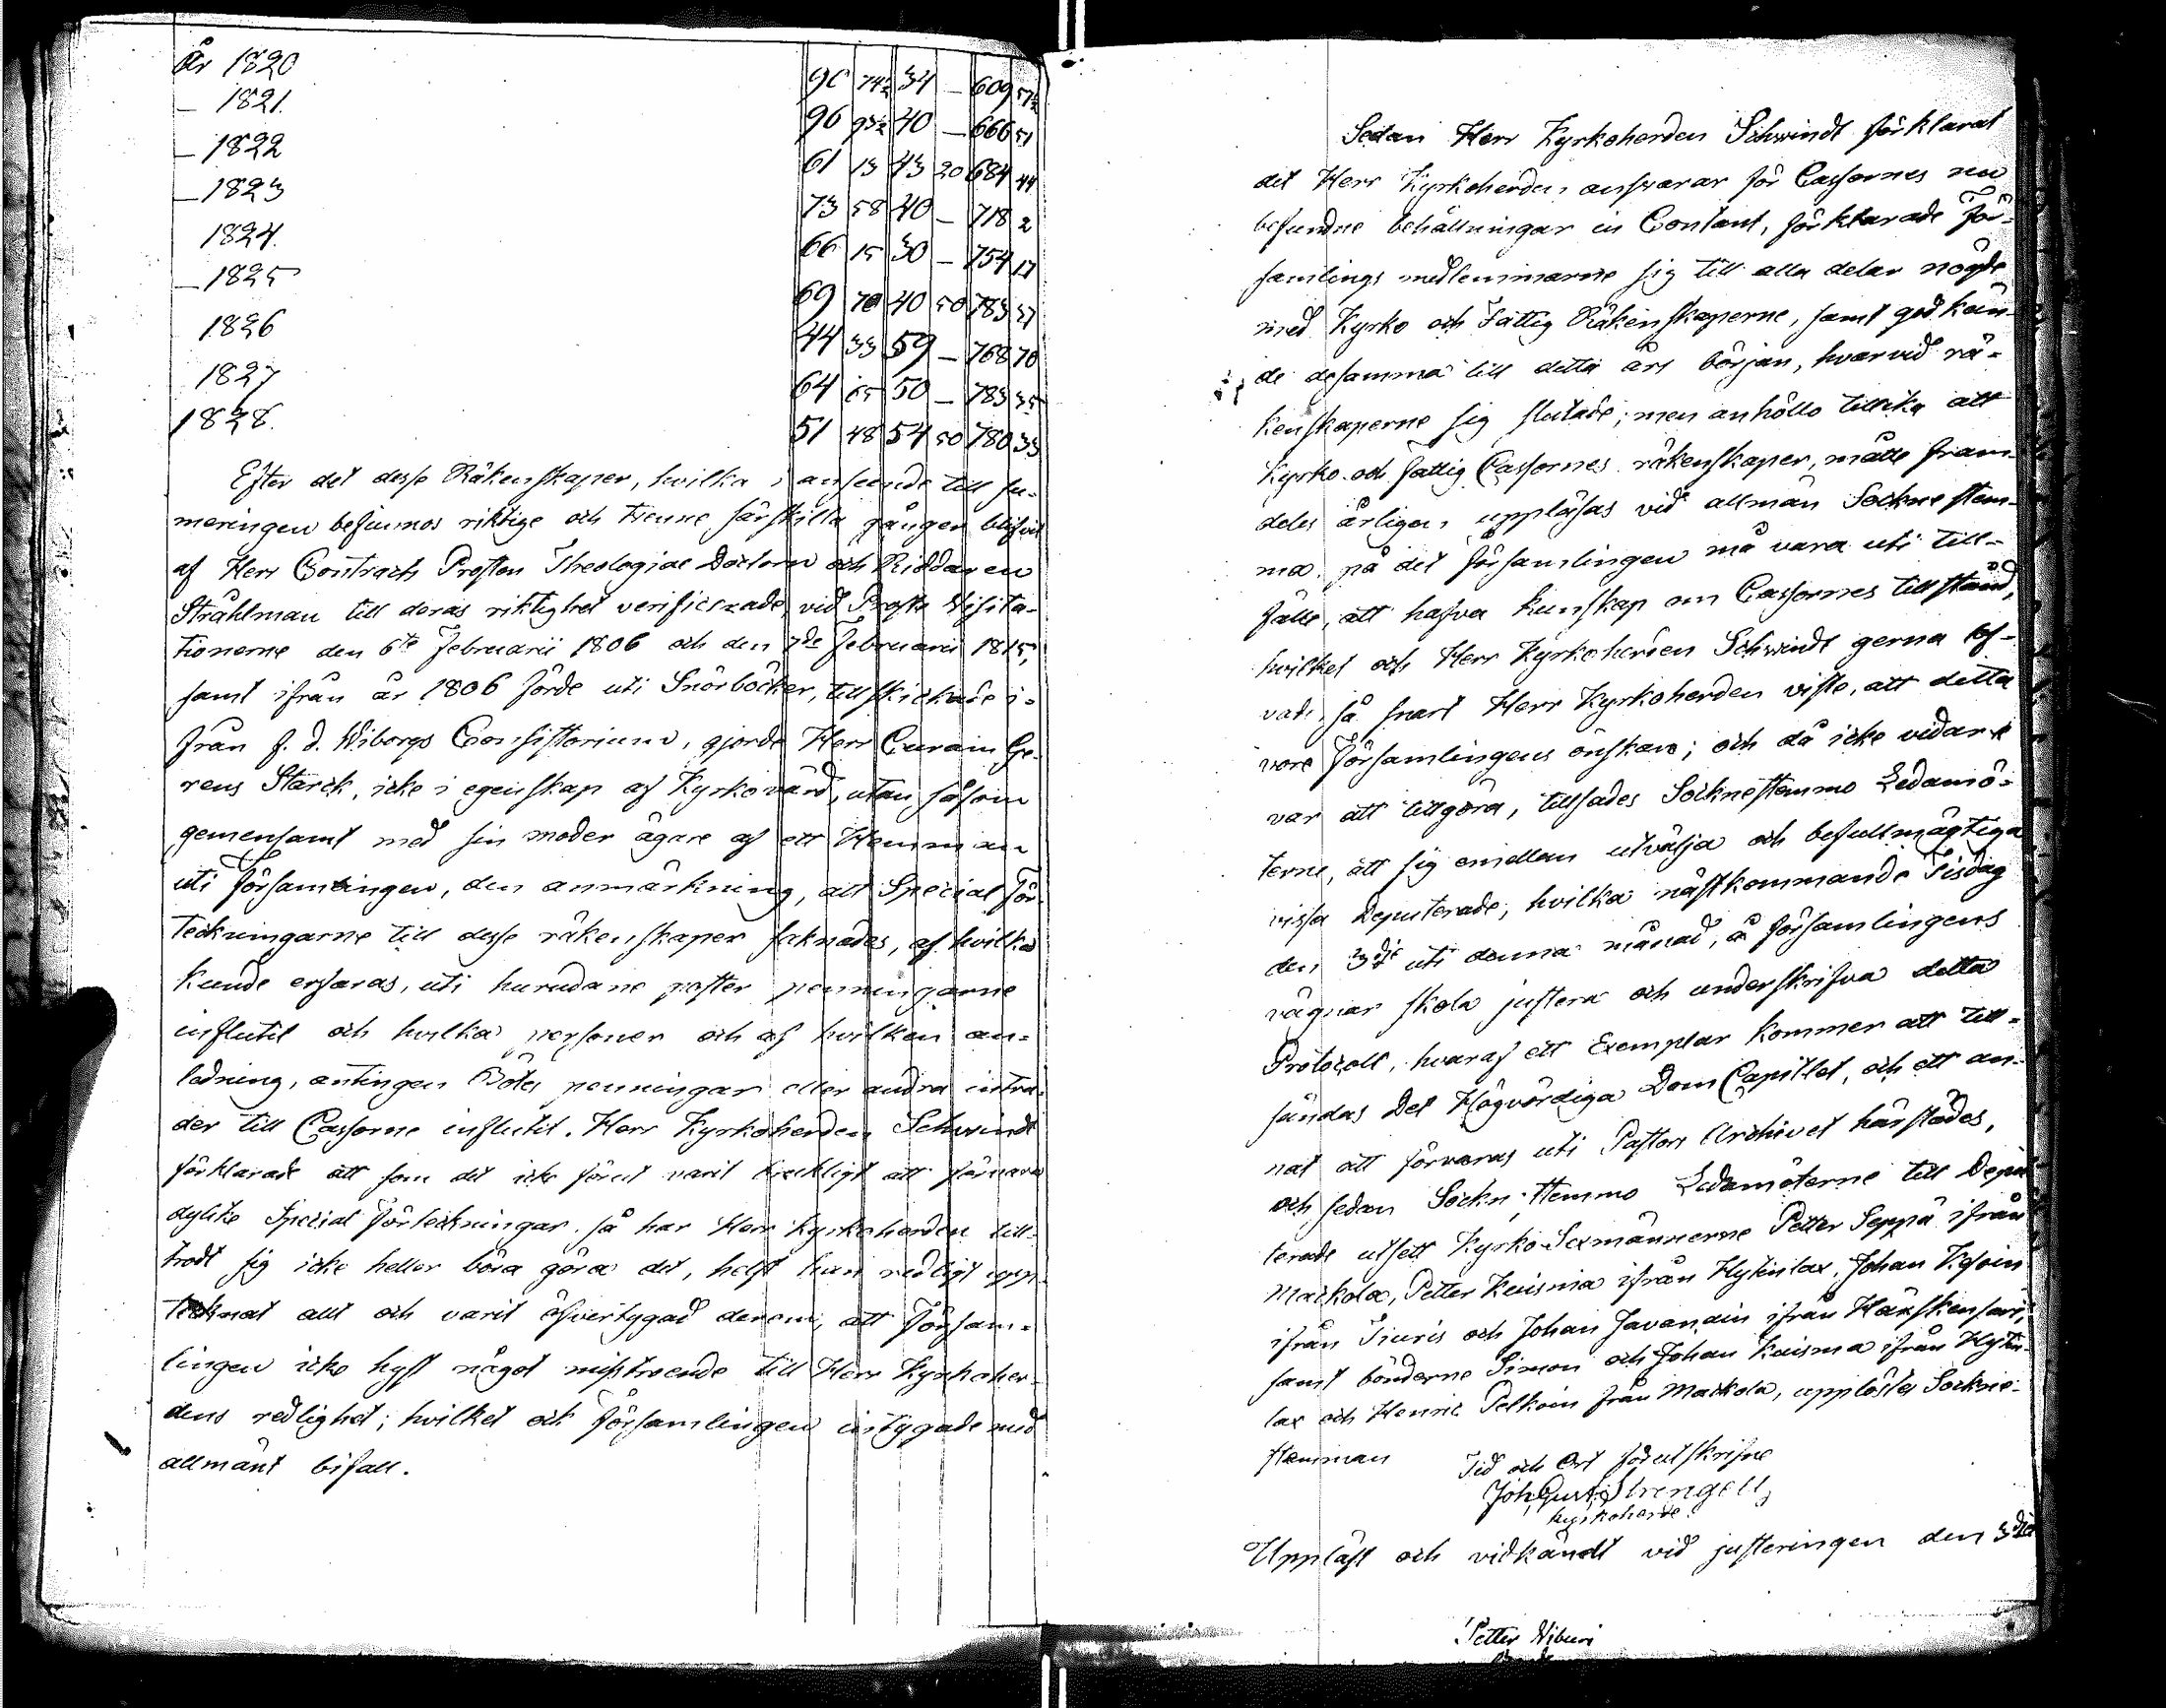 År 1820 90 74½ 34 — 609 57½
— 1821. 96 93½ 40 — 666 51
— 1822 61 13 43 20 684 44
— 1823 73 58 40 — 718 2
1824. 66 15 30 — 754 17
— 1825 69 70 40 50 783 37
1826 44 33 59 — 768 70
1827 64 65 50 — 783 35
1828. 51 48 54 50 780 33
Efter det desse Räkenskaper, hvilka i anseende till su-
meringen befunnos riktige och trenne särskilta gånger blifvit
af Herr Contracts Prosten Theologiae Doctorn och Riddaren
Stråhlman till deras riktighet verificerade, vid Prosts Visita-
tionerne den 6te Februarii 1806 och den 7de Februarii 1815,
samt ifrån år 1806 förde uti Snörböcker, tillskickade i-
från f. d. Wiborgs Consistorium, gjorde Herr Capitain Ge-
rens Starck, icke i egenskap af Kyrkovärd, utan såsom
gemensamt med sin moder ägare af ett Hemman
uti Församlingen, den anmärkning, att Special För-
teckningarne till desse räkenskaper saknades, af hvilka
kunde erfaras, uti hurudane poster penningarne
influtit och hvilka personer och af hvilken an-
ledning, antingen Böter penningar eller andra intra-
der till Cassorne influtit. Herr Kyrkoherden Schwindt
förklarade att som det icke förut varit brukligt att förvara
dylike Special Förteckningar, så har Herr Kyrkoherden till-
trodt sig icke heller böra göra det, helst han redligt upp-
tecknat allt och varit öfvertygad derom, att Försam-
lingen icke hyst något misstroende till Herr Kyrkoher-
dens redlighet; hvilket och Församlingen intygade med
allmänt bifall.
Sedan Herr Kyrkoherden Schwindt förklarat
det Herr Kyrkoherden ansvarar för Cassornes nu
befundne behållningar in Contant, förklarade För-
samlings medlemmarne sig till alla delar nögde
med Kyrko och Fattig Räkenskaperne, samt godkän-
de desamma till detta års början, hvarvid rä-
kenskaperne sig slutade; men anhöllo tillika att
Kyrko och Fattig Cassornes räkenskaper, måtte fram-
deles årligen uppläsas vid allmän Sockne stem-
ma, på det Församlingen må vara uti till-
fälle, att hafva kunskap om Cassornes tillstånd,
hvilket och Herr Kyrkoherden Schwindt gerna lof-
vade, så snart Herr Kyrkoherden viste, att detta
vore Församlingens önskan; och då icke vidare
var att tillgöra, tillsades Socknestemmo Ledamö-
terne, att sig emellan utvälja och befullmägtiga
vissa Deputerade, hvilka nästkommande Tisdag
den 3die uti denna månad, å församlingens
vägnar skola justera och underskrifva detta
Protocoll, hvaraf ett Exemplar kommer att till-
sändas Det Högvördiga Dom Capitlet, och ett an-
nat att förvaras uti Pastors Archivet härstädes,
och sedan Sockne Stemmo Ledamöterne till Depu-
terade utsett Kyrko Sexmännerne Petter Seppä ifrån
Maskola, Petter Kuisma ifrån Hytinlax, Johan
ifrån Tiuris och Johan Javanain ifrån
samt bönderne Simon och Johan Kuisma ifrån Hytin-
lax och Henric Pelkoin från Maskola, upplöstes Sockne-
stemman
Tid och Ort förutskrifne
Joh: Gust: Strengell,
Kyrkoherde.
Uppläst och vidkändt vid justeringen den 3die
Petter Wiburi